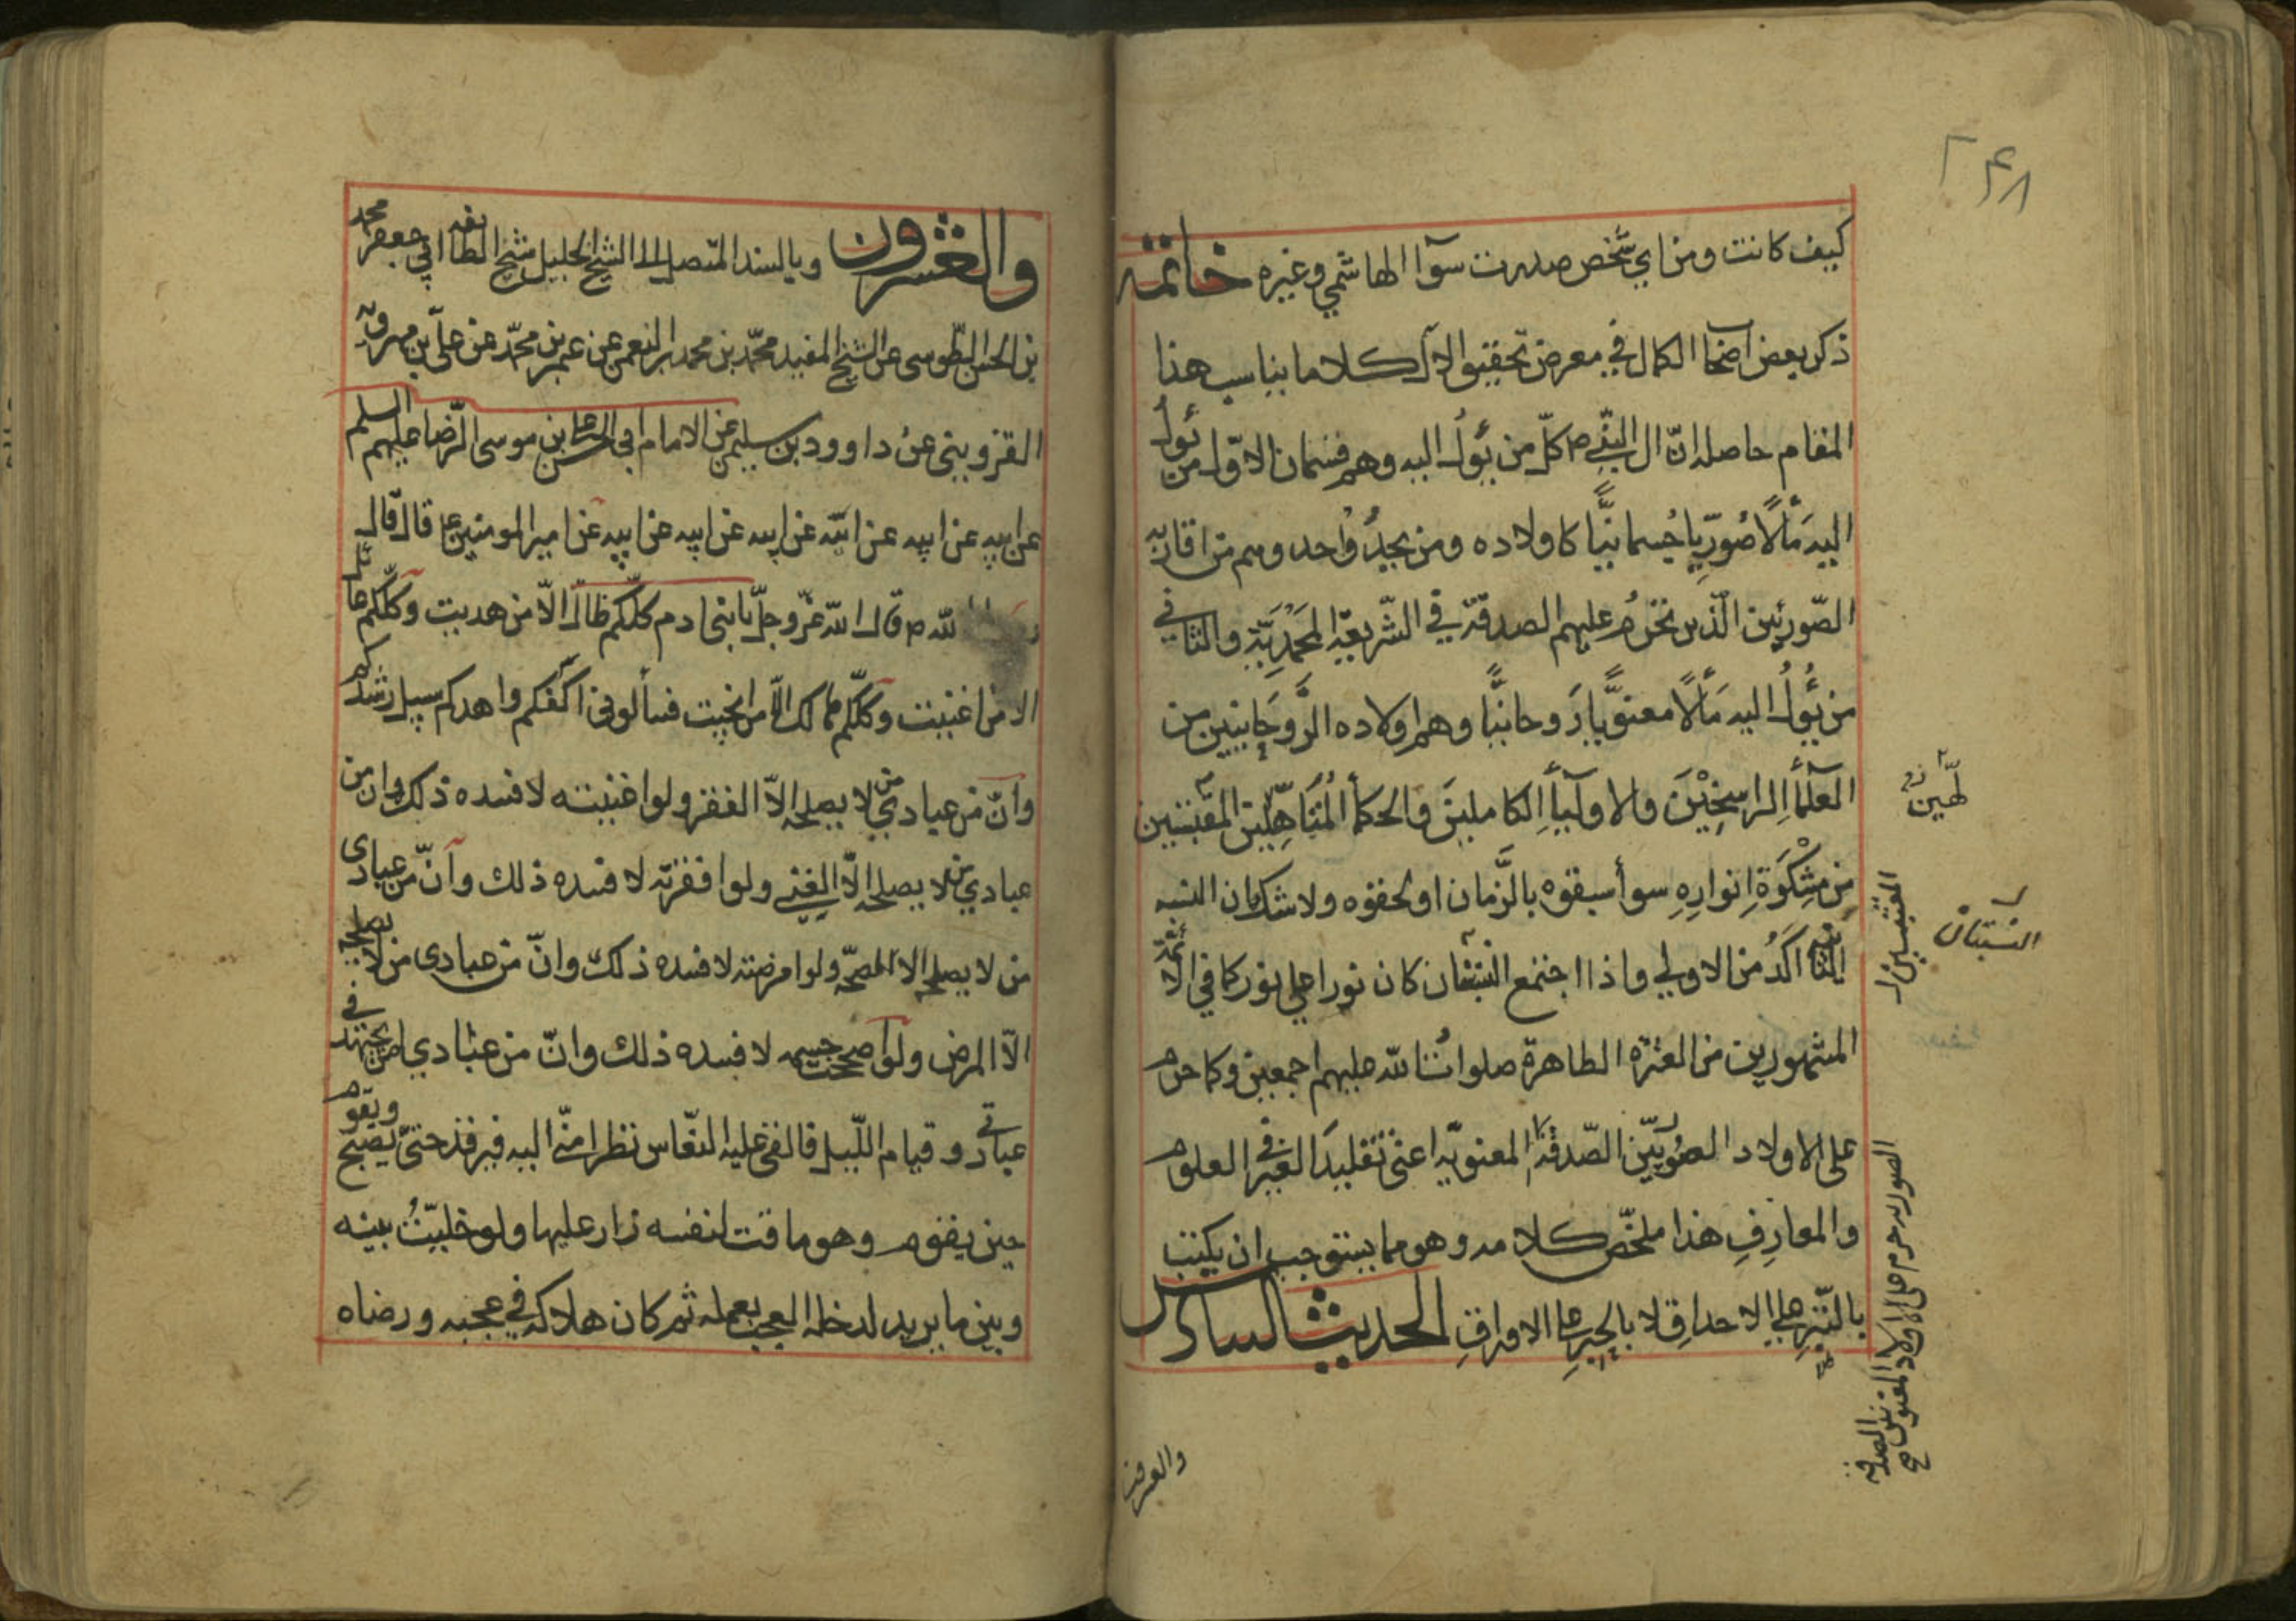 ٢۴٨
كيف كانت ومن اي شخص صدرت سوآ الهاشمي وغيره خاتمه
ذكر بعض اصحاب الكمال في معرض تحقيق الآل كلاما يناسب هذا
المقام حاصله انّ آل النبّي ص كلّ من يؤل اليه وهم قسمان الاوّل من يؤلُ
اليه مَألًا صُورّيا جُسمانيًّا كاولاده ومن يحذُ وُحدوهم من اقاربه
الصّوريّين الّذين تحرُم عليهم الصدقة في الشّريعة المحَمّدِيّةِ والثاني
من يَؤُلُ اليه مَألًا معنوّيا رَوحانيًّا وهم اولاده الرّوحَانيين من
العلمآءِ الراسِخِيْنَ والاوليآءِ الكاملينَ والحكمآء المُتَاَهِّلين المقتبسين
من مِشْكَوَةِ انوارِهِ سوآء سبقوه بالزَّمان او لحقوه ولا شك ان النسبه
الثّانيه اكَدُ من الاولي واذا اجتمع النسبتان كان نورا علي نور كما في الائمّة
المشهورين من العترة الطاهرة صلوات الله عليهم اجمعين وكما حرم
علي الاولاد الصُوريّين الصّدقة المعنويّه اعني تقليدَ الغير في العلوم
والمعارِفِ هذا ملخّص كلامه وهو مما يستوجب ان يكتب
بالتّبرِ علي الاحداقِ لا بالحِبرِ علي الاوراقِ الحديث السادس
لّهين
المقتبسين
النسبتان
الصوريه حرم علي الاولاد المعنويين الصدقه
والعشرون
والعشرون وبالسند المتّصل الي الشيخ الجليل شيخ الطائفه ابي جعفر محمد
بن الحسن الطّوسي عن الشيخ المفيد محمّد بن محمد بن النعمن عن عمر بن محمّد عن علّي بن مهرويّه
القزويني عن داوود بن سليمن عن الامام ابي الحسن علي بن موسي الرّضا عليهم السلم
عن ابيه عن ابيه عن ابيه عن ابيه عن ابيه عن ابيه عن امير المومنين ع قال قال
رسول الله ص قال الله عزّوجلّ يا بني ادم كلّكم ضالّ الّا من هديت وكلّكم عائل
الا من اغنيت وكلّكم هالك الّا من انجيت فسألوني اكفكم واهدكم سبيل رشدكم
وانّ من عبادي من لا يصلحه الّا الفقر ولو اغنيته لافسده ذلك وان من
عبادي من لا يصلحه الّا الغني ولو افقرته لافسده ذلك وانّ من عبادي
من لا يصلحه الا الصحّه ولو امرضته لافسده ذلك وانّ من عبادي من لا يصلحه
الّا المرض ولو اصححت جسمه لافسده ذلك وانّ من عبادي من يجتهد في
عبادتي وقيام اللّيل فالقي عليه النعّاس نظرا منّي اليه فيرقد حتّي يصبح ويقوم
حين يقوم وهو ماقت لنفسه زار عليها ولو خليتُ بينه
وبين ما يريد لدخله العجب بعمله ثم كان هلاكه في عجبه ورضاه